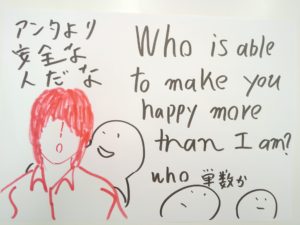 アンタより
安全な
人だな
Who is able
to make you
happy more
than I am?
who 単数か